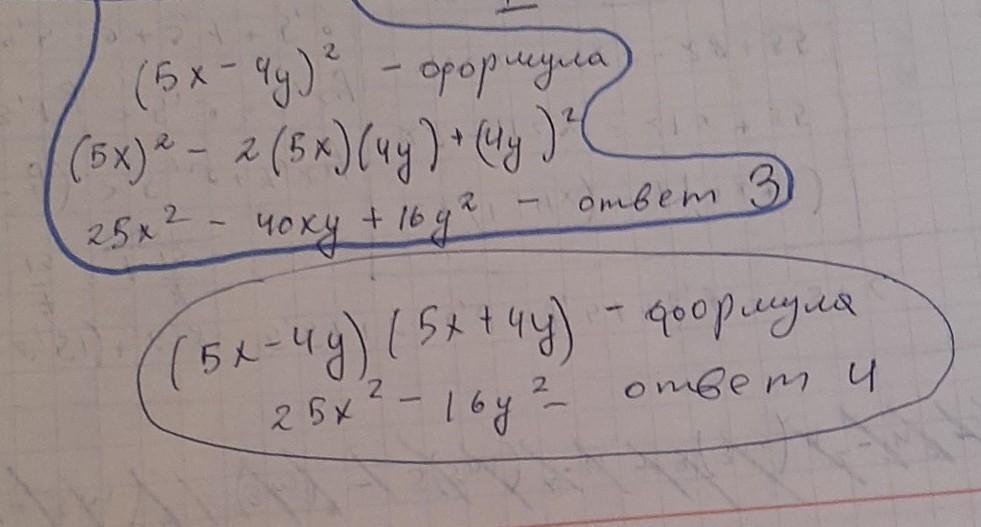 (5x - 4y)² - формула
(5x)² - 2(5x)(4y) + (4y)²
25x² - 40xy + 16y² - ответ 3
(5x - 4y)(5x + 4y) - формула
25x² - 16y² - ответ 4